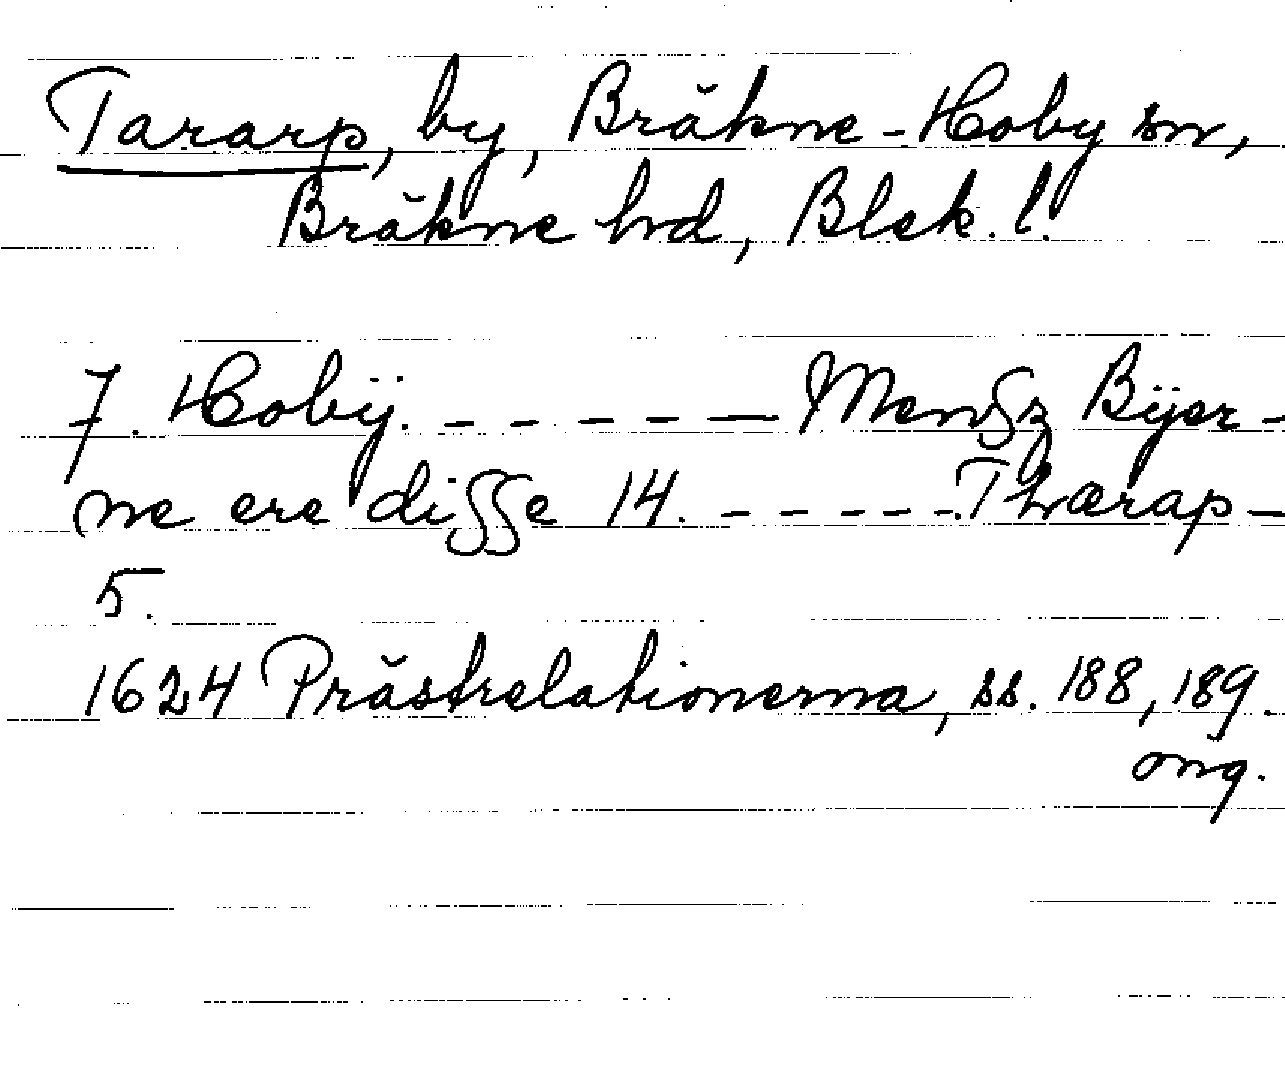 Tararp, by, Bräkne-Hoby sn,
Bräkne hd, Blek. l.
7. Hobÿ. - - - - - — Menſz Bÿer-
ne ere diſſe 14. - - - - -. Thærap -
5.
1624 Prästrelationerna, ss. 188, 189.
ong.